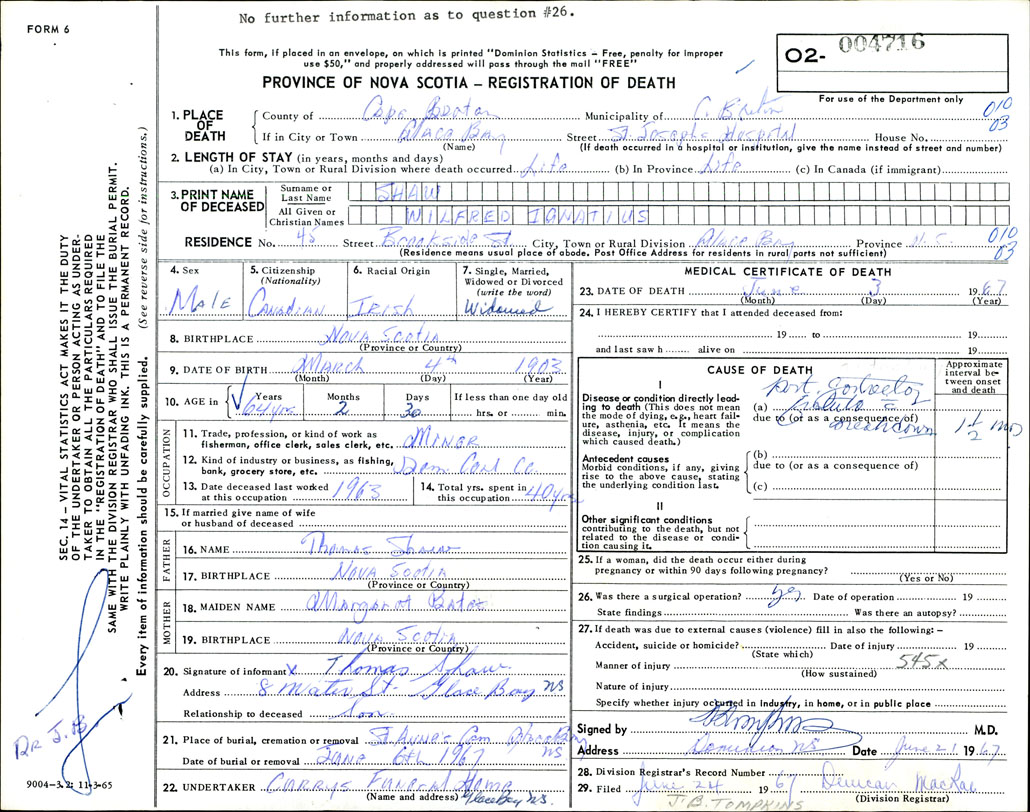 No further information as to question #26.
FORM 6
This form, if placed in an envelope, on which is printed "Dominion Statistics – Free, penalty for improper
use $50," and properly addressed will pass through the mail "FREE"
PROVINCE OF NOVA SCOTIA – REGISTRATION OF DEATH
O2- 004716
For use of the Department only
010
03
1. PLACE OF DEATH
County of Cape Breton Municipality of C. Breton
If in City or Town Glace Bay Street St. Josephs Hospital House No.
(Name) (If death occurred in a hospital or institution, give the name instead of street and number)
2. LENGTH OF STAY (in years, months and days)
(a) In City, Town or Rural Division where death occurred Life (b) In Province Life (c) In Canada (if immigrant)
3. PRINT NAME OF DECEASED
Surname or Last Name SHAW
All Given or Christian Names WILFRED IGNATIUS
RESIDENCE No. 45 Street Brookside St City, Town or Rural Division Glace Bay Province N.S. 010
03
(Residence means usual place of abode. Post Office Address for residents in rural parts not sufficient)
4. Sex Male
5. Citizenship (Nationality) Canadian
6. Racial Origin Irish
7. Single, Married, Widowed or Divorced (write the word) Widowed
8. BIRTHPLACE Nova Scotia
(Province or Country)
9. DATE OF BIRTH March 4th 1903
(Month) (Day) (Year)
10. AGE in Years Months Days If less than one day old
64 yrs 2 30 hrs. or min.
OCCUPATION
11. Trade, profession, or kind of work as fisherman, office clerk, sales clerk, etc. Miner
12. Kind of industry or business, as fishing, bank, grocery store, etc. Dom. Coal Co.
13. Date deceased last worked at this occupation 1963
14. Total yrs. spent in this occupation 40 yrs
15. If married give name of wife or husband of deceased
FATHER
16. NAME Thomas Shaw
17. BIRTHPLACE Nova Scotia
(Province or Country)
MOTHER
18. MAIDEN NAME Margaret Bates
19. BIRTHPLACE Nova Scotia
(Province or Country)
20. Signature of informant X Thomas Shaw
Address 8 Water St. Glace Bay NS
Relationship to deceased Son
21. Place of burial, cremation or removal St Anne's Cem Glace Bay NS
Date of burial or removal June 6th 1967
22. UNDERTAKER Currys Funeral Home
(Name and address) Glace Bay NS.
MEDICAL CERTIFICATE OF DEATH
23. DATE OF DEATH June 3 1967
(Month) (Day) (Year)
24. I HEREBY CERTIFY that I attended deceased from:
19 to 19
and last saw h alive on 19
CAUSE OF DEATH
Approximate interval between onset and death
I
Disease or condition directly leading to death (This does not mean the mode of dying, e.g., heart failure, asthenia, etc. It means the disease, injury, or complication which caused death.)
(a) post
due to (or as a consequence of)
breakdown 1 1/2 mo
Antecedent causes
Morbid conditions, if any, giving rise to the above cause, stating the underlying condition last.
(b)
due to (or as a consequence of)
(c)
II
Other significant conditions
contributing to the death, but not related to the disease or condition causing it.
25. If a woman, did the death occur either during
pregnancy or within 90 days following pregnancy?
(Yes or No)
26. Was there a surgical operation? yes Date of operation 19
State findings Was there an autopsy?
27. If death was due to external causes (violence) fill in also the following: –
Accident, suicide or homicide? Date of injury 19
(State which)
Manner of injury 545X
(How sustained)
Nature of injury
Specify whether injury occurred in industry, in home, or in public place
Signed by M.D.
Address Dominion NS Date June 21 1967
28. Division Registrar's Record Number
29. Filed June 24 1967 Duncan MacRae
(Division Registrar)
J. B. TOMPKINS
SEC. 14 – VITAL STATISTICS ACT MAKES IT THE DUTY
OF THE UNDERTAKER OR PERSON ACTING AS UNDER-
TAKER TO OBTAIN ALL THE PARTICULARS REQUIRED
IN THE "REGISTRATION OF DEATH" AND TO FILE THE
SAME WITH THE DIVISION REGISTRAR WHO SHALL ISSUE THE BURIAL PERMIT.
WRITE PLAINLY WITH UNFADING INK. THIS IS A PERMANENT RECORD.
Every item of information should be carefully supplied. (See reverse side for instructions.)
DR J. B
9004-3.2: 11-3-65